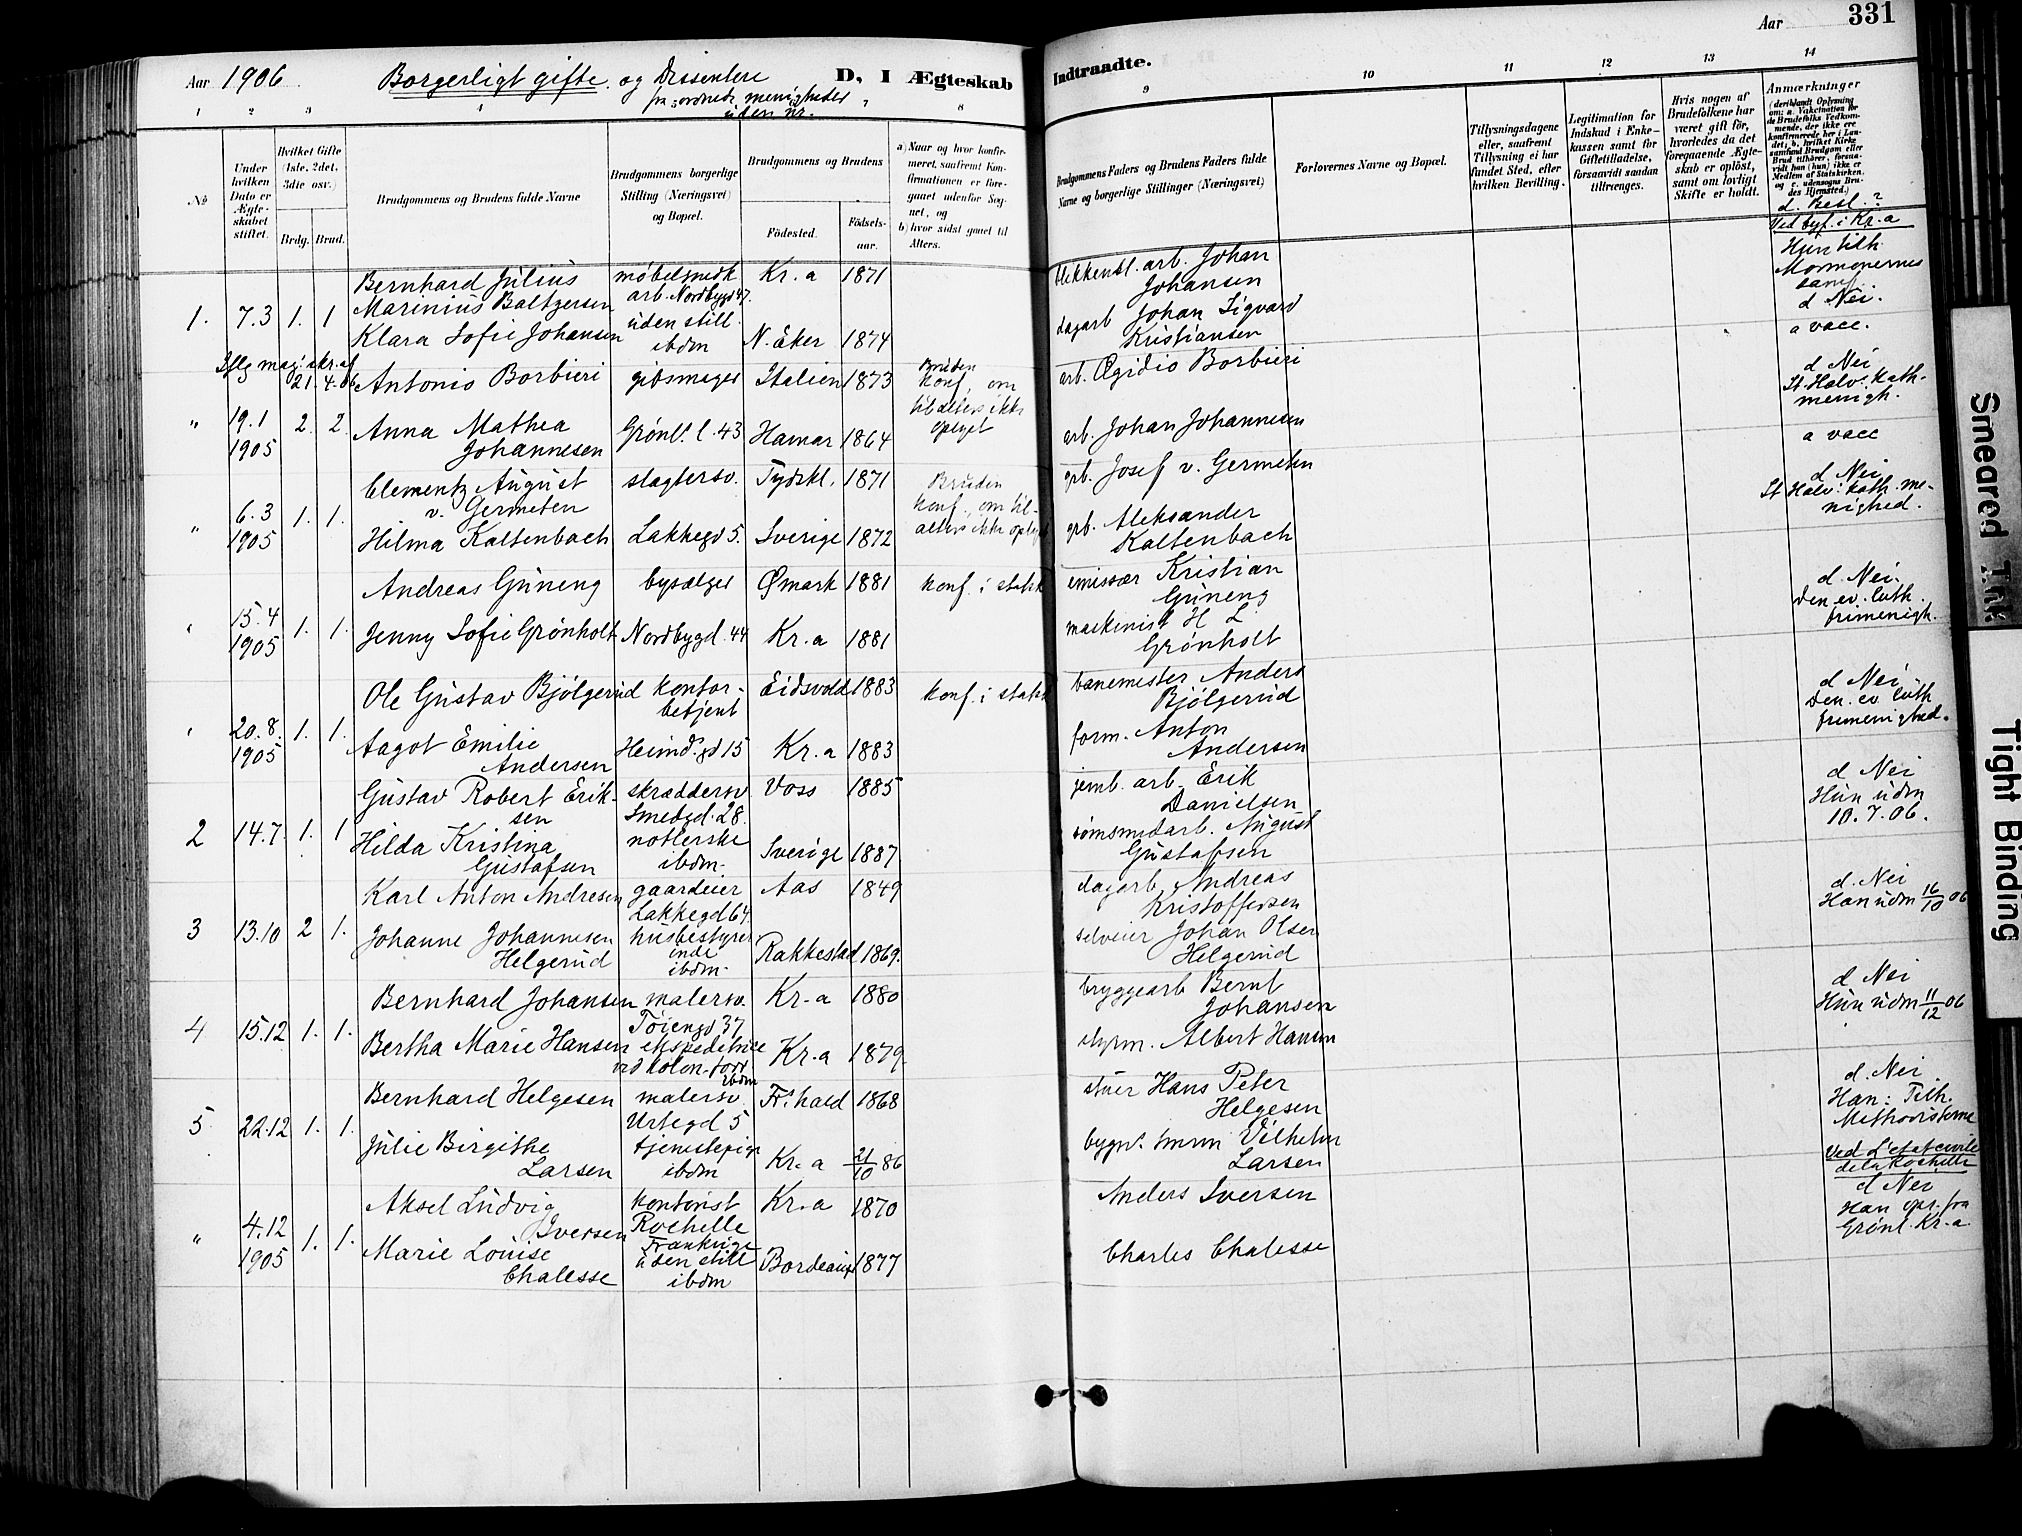 Aar 1906
Borgerligt gifte og Dissentere
fra ordnede menigheder
uden Nr.
D, I Ægteskab
Indtraadte.
Aar
331
1 2 3 4 7 8 9 10 11 12 13 14
No
Under hvilken Dato er Ægteskabet stiftet.
Hvilket Gifte (1ste, 2det, 3die osv.)
Brdg. Brud.
Brudgommens og Brudens fulde Navne
Brudgommens borgerlige Stilling (Næringsvei) og Bopæl.
Brudgommens og Brudens
Födested.
Födsels-aar.
a) Naar og hvor konfirmeret, saafremt Konfirmationen er foregaaet udenfor Sognet, og
b) hvor sidst gaaet til Alters.
Brudgommens Faders og Brudens Faders fulde Navne og borgerlige Stillinger (Næringsvei)
Forlovernes Navne og Bopæl.
Tillysningsdagene eller, saafremt Tillysning ei har fundet Sted, efter hvilken Bevilling.
Legitimation for Indskud i Enkekassen samt for Giftetilladelse, forsaavidt saadan tiltrænges.
Hvis nogen af Brudefolkene har været gift för, hvorledes da det foregaaende Ægteskab er oplöst, samt om lovligt Skifte er holdt.
Anmærkninger
(deriblandt Oplysning om: a. Vakcination for de Brudefolks Vedkommende, der ikke ere konfirmerede her i Landet; b. hvilket Kirkesamfund Brudgom eller Brud tilhörer, forsaavidt han (hun) ikke er Medlem af Statskirken, og c. udensogns Brudes Hjemsted.)
d. Besl. ?
Ved byf. i Kr.a
Bernhard Julius møbelsnedk Kr.a 1871 blikkensl. arb. Johan
Marinius Baltzersen arb. Nordbygd 47. Johansen
1. 7.3 1. 1 Klara Sofie Johansen uden still. ibdm N. Eker 1874 dagarb Johan Sigvard
Kristiansen
Hun tilh.
Mormonernes
samf.
d Nei.
a vacc.
Iflg mag. skr. af
21.4.06
Antonio Borbieri gibsmager Italien 1873 Bruden
konf., om
til alters ikke
oplyst
arb. Œgidio Borbieri
" 19.1 1905 2. 2. Anna Mathea
Johannesen Grønl. l. 43 Hamar 1864 arb. Johan Johannesen
d Nei
St. Halv. kath.
menigh.
a vacc
Clementz August
v. Germeten slagtersv. Tydskl. 1871 Bruden
konf., om til
alters ikke oplyst
grb. Josef v. Germeten
" 6.3 1905 1. 1. Hilma Kaltenbach Lakkegd 5. Sverige 1872 grb. Aleksander
Kaltenbach
d Nei
St Halv. kath. me-
nighed.
Andreas Güneng bysælger Ømark 1881 konf. i statsk emissær Kristian
Güneng
15.4 1905 1. 1. Jenny Sofie Grønholt Nordbygd. 44 Kr.a 1881 maskinist H L
Grønholt
d. Nei.
Den ev. luth.
frimenigh.
Ole Gustav Bjølgerud kontor-
betjent Eidsvold 1883 konf. i statsk banemester Anders
Bjølgerud
20.8. 1905 1. 1. Aagot Emilie
Andersen Heimd.gd 15 Kr.a 1883 form. Anton
Andersen
d Nei
Den ev luth
frimenighed.
Gustav Robert Erik-
sen skræddersv
Smedgd. 28. Voss 1885 jernb. arb. Erik
Danielsen
2 14.7. 1. 1 Hilda Kristina
Gustafsen
ibdm. Sverige 1887 sømsmedarb. August
Gustafsen
d Nei
Hun udm
10.7.06.
Karl Anton Andresen gaardeier
Lakkegd 64 Aas 1849 dagarb. Andreas
Kristoffersen
3 13.10 2 1. Johanne Johannesen
Helgerud husbestyrer
inde
ibdm. Rakkestad 1869. selveier Johan Olsen
Helgerud
d. Nei
Han udm 16/10 06
Bernhard Johansen malersv. Tøiengd 37 Kr.a 1880 bryggearb Bernt
Johansen
4 15.12 1. 1. Bertha Marie Hansen ekspeditrice
ved kolon.forr
ibdm Kr.a 1879. styrm. Albert Hansen
d Nei
Hun udm 11/12 06
Bernhard Helgesen malersv
Urtegd 5 Fr.hald 1868 stuer Hans Peter
Helgesen
5. 22.12 1. 1. Julie Birgithe
Larsen tjenestepige
ibdm Kr.a 21/10 86 bygn. Vilhelm
Larsen
d. Nei
Han: Tilh.
Methodisterne
Ved L'etat civile
de la Rochelle
Aksel Ludvig
Iversen kontorist
Rochelle
Frankrige Kr.a 1870 Anders Iversen
" 4.12 1905 1. 1. Marie Louise
Chalesse uden still
ibdm Bordeaux 1877 Charles Chalesse
d Nei
Han opr. fra
Grønl. Kr.a
Smeared Ink
Tight Binding